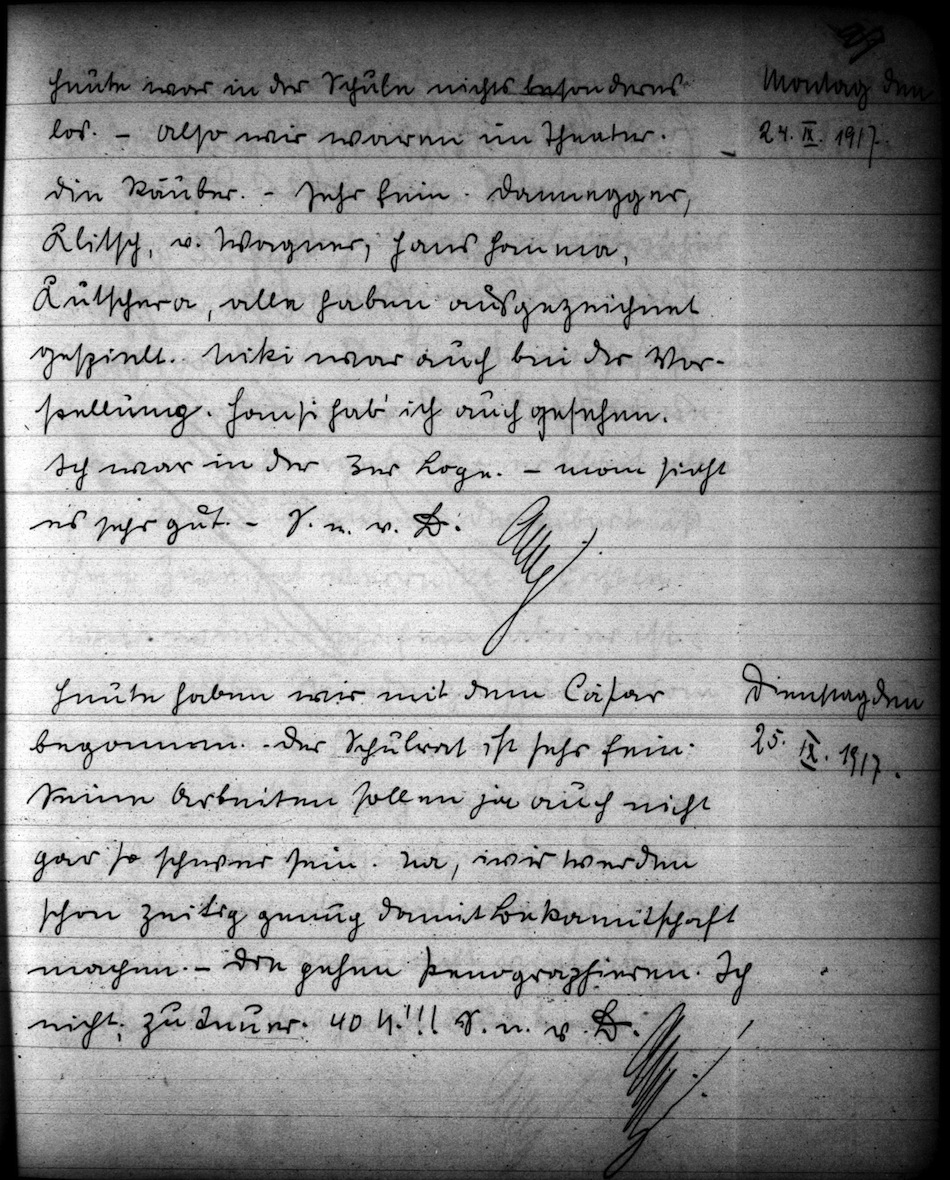 Montag den
24. IX. 1917.
Heute war in der Schule nichts besonderes
los. – Also wir waren im Theater.
Die Räuber. – Sehr fein. Dannegger,
Klitsch, v. Wagner, Hans Homma,
Kutschera, alle haben ausgezeichnet
gespielt. Niki war auch bei der Vor-
stellung. Hansi hab' ich auch gesehen.
Ich war in der 3er Loge. – man sieht
es sehr gut. – S. n. v. D.
Dienstag den
25. IX. 1917.
Heute haben wir mit dem Cäsar
begonnen. – Der Schulrat ist sehr fein.
Seine Arbeiten sollen ja auch nicht
gar so schwer sein. Na, wir werden
schon zeitig genug damit Bekanntschaft
machen. – Die gehen stenographieren. Ich
nicht, zu teuer. 40 K!!! S. n. v. D.